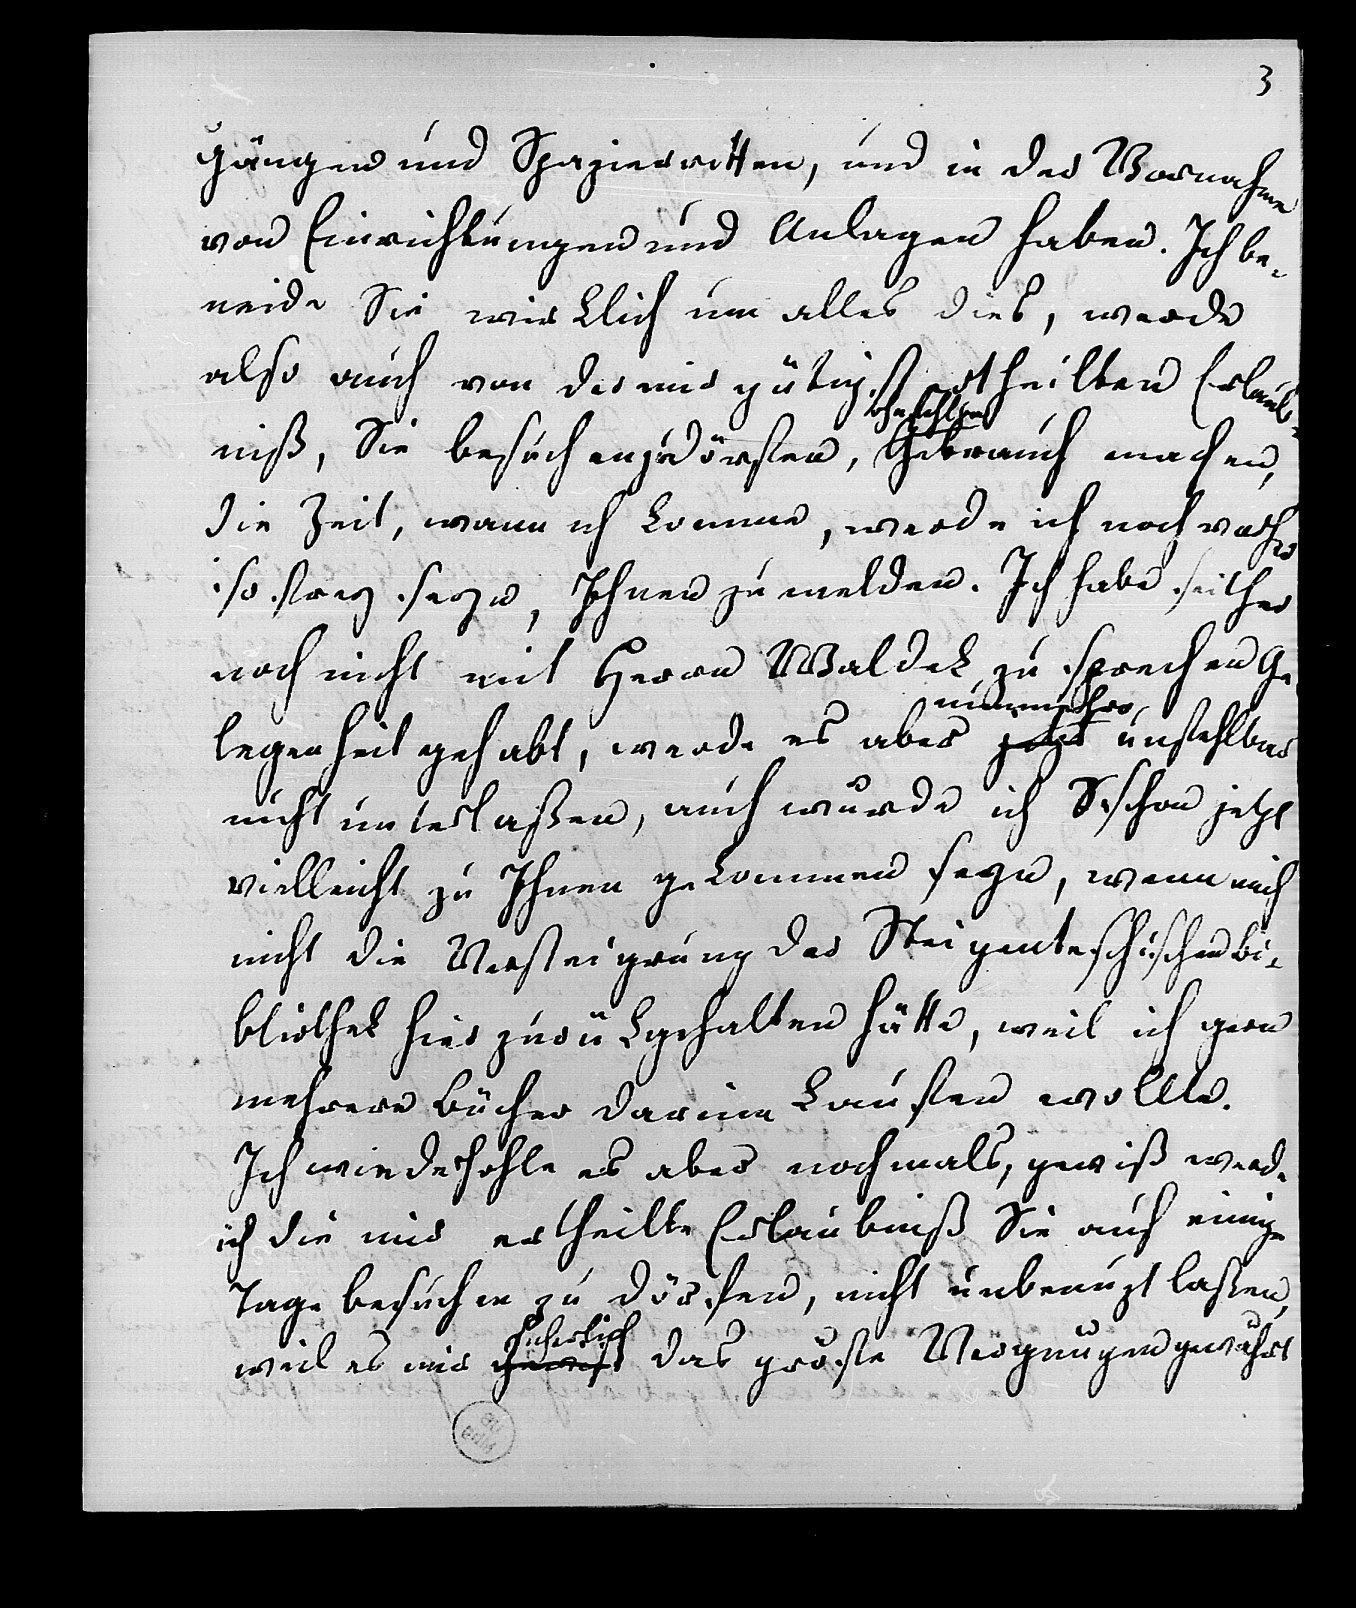 3
gängen und Spazierritten, und in der Vornahme
von Einrichtungen und Anlagen haben. Ich be-
neide Sie wirklich um alles dies, werde
also auch von der mir gütigst ertheilten Erlaub-
ohnfehlbar
niß, Sie besuchen zu dörfen, Gebrauch machen,
die Zeit, wann ich komme, werde ich noch vorher
so frey seyn, Ihnen zu melden. Ich habe seither
noch nicht mit Herrn Waldek zu sprechen Ge-
nunmehro
legenheit gehabt, werde es aber jetzt unfehlbar
nicht unterlaßen, auch wurde ich schon jetzt
vielleicht zu Ihnen gekommen seyn, wenn mich
nicht die Versteigrung der Steigenteschischen Bi-
bliothek hier zurükgehalten hätte, weil ich gern
mehrere Bücher darinn kaufen wollte.
Ich wiederhohle es aber nochmals, gewiß werde
ich die mir ertheilte Erlaubniß Sie auf einige
Tage besuchen zu dörfen, nicht unbenuzt laßen,
sicherlich
weil es mir gewiß das gröste Vergnügen gewährt